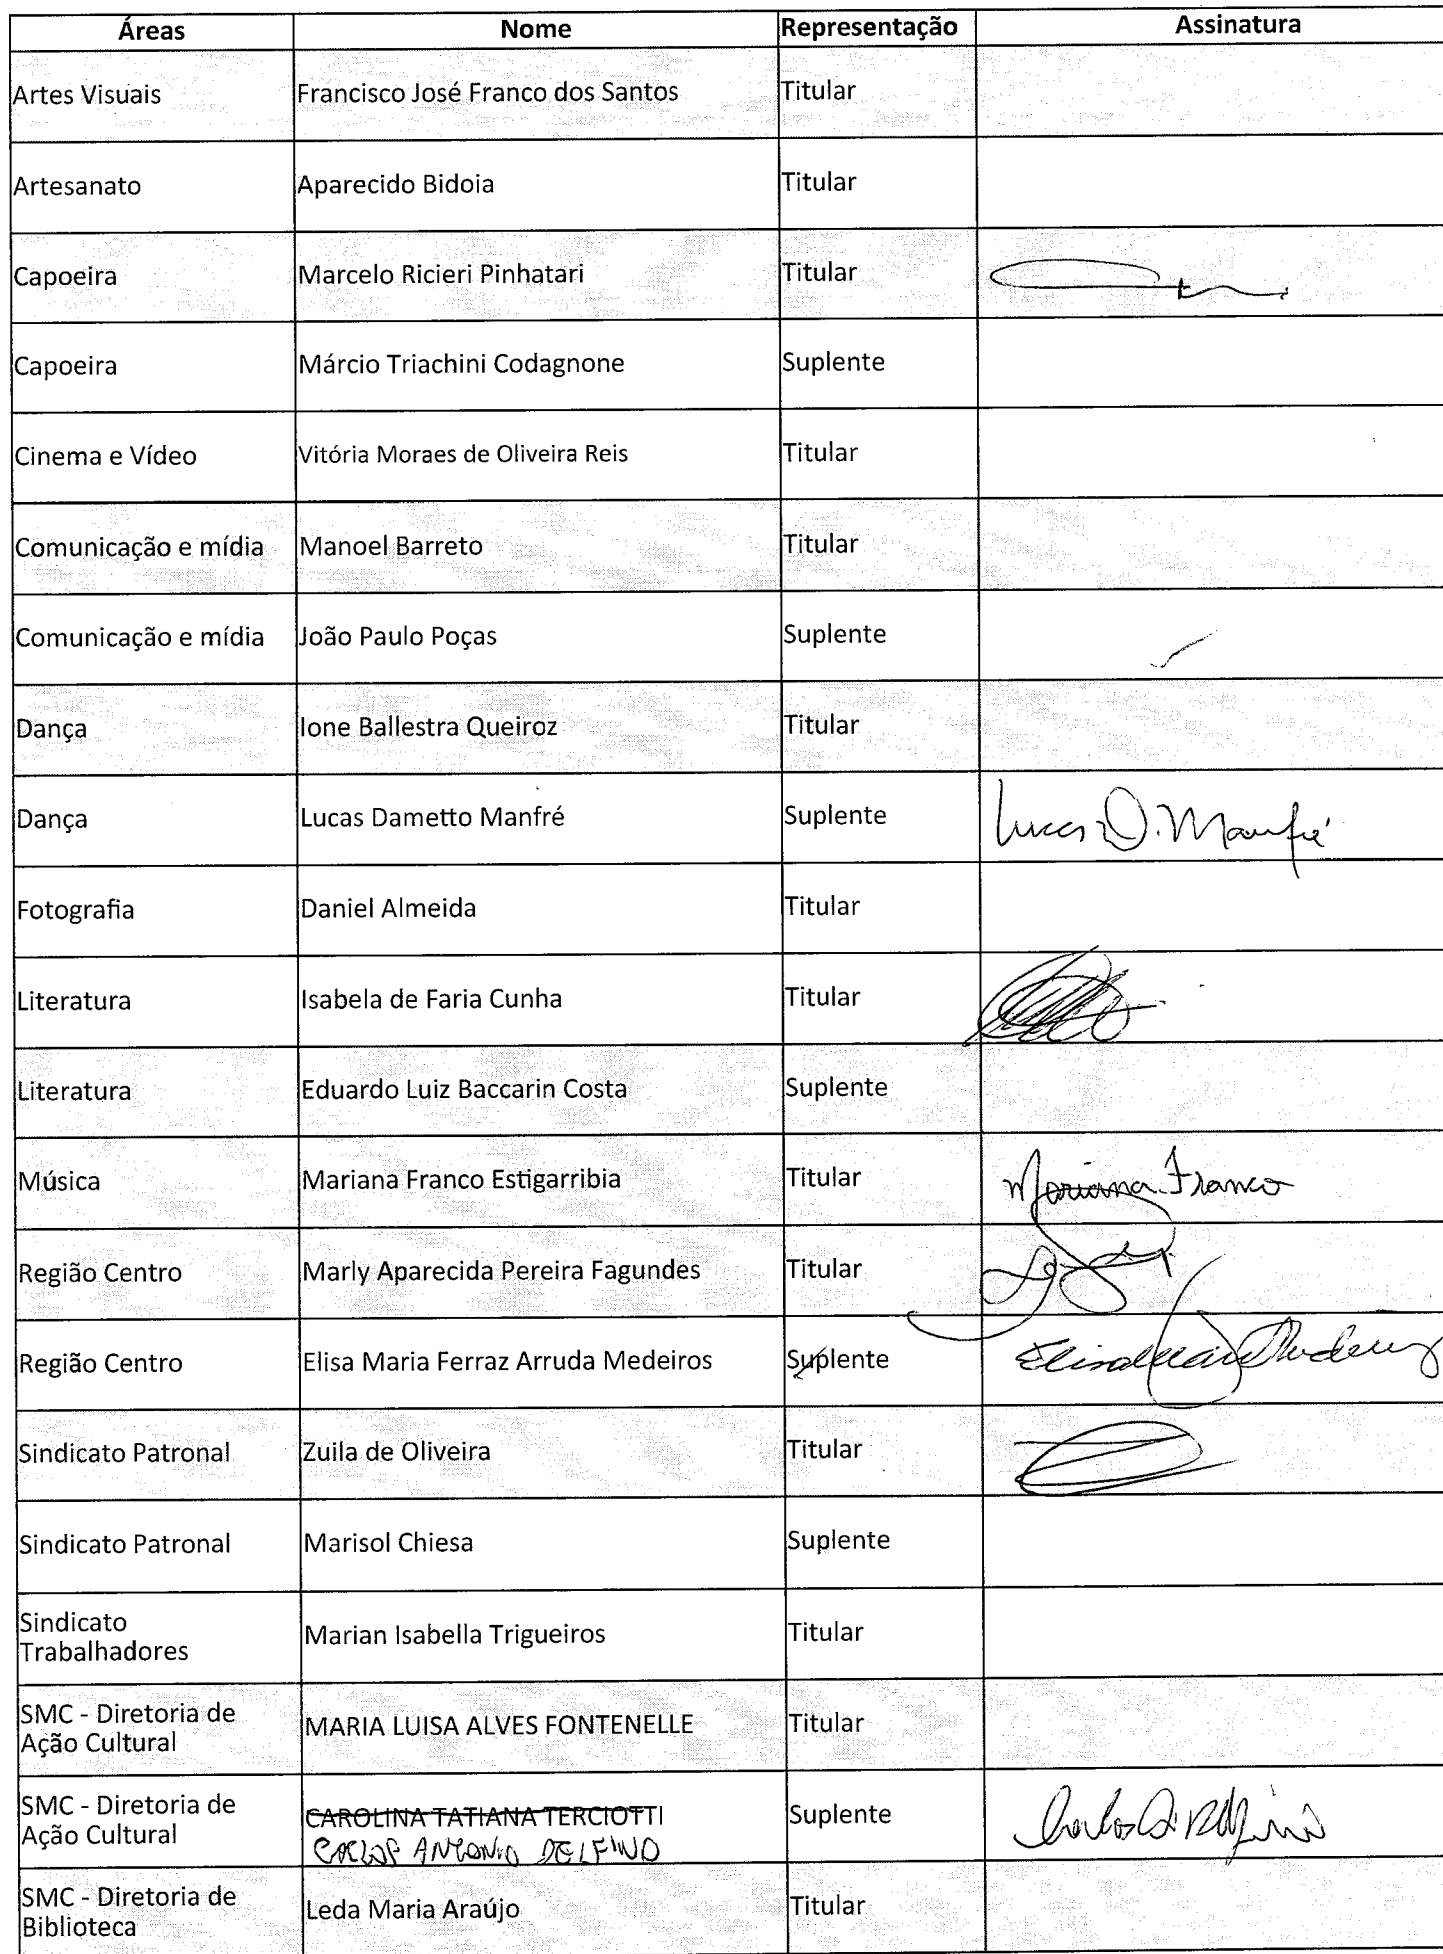 Áreas Nome Representação Assinatura
Artes Visuais Francisco José Franco dos Santos Titular
Artesanato Aparecido Bidoia Titular
Capoeira Marcelo Ricieri Pinhatari Titular
Capoeira Márcio Triachini Codagnone Suplente
Cinema e Vídeo Vitória Moraes de Oliveira Reis Titular
Comunicação e mídia Manoel Barreto Titular
Comunicação e mídia João Paulo Poças Suplente
Dança Ione Ballestra Queiroz Titular
Dança Lucas Dametto Manfré Suplente Lucas D. Manfré
Fotografia Daniel Almeida Titular
Literatura Isabela de Faria Cunha Titular
Literatura Eduardo Luiz Baccarin Costa Suplente
Música Mariana Franco Estigarribia Titular Mariana Franco
Região Centro Marly Aparecida Pereira Fagundes Titular
Região Centro Elisa Maria Ferraz Arruda Medeiros Suplente
Sindicato Patronal Zuila de Oliveira Titular
Sindicato Patronal Marisol Chiesa Suplente
Sindicato
Trabalhadores Marian Isabella Trigueiros Titular
SMC - Diretoria de
Ação Cultural MARIA LUISA ALVES FONTENELLE Titular
SMC - Diretoria de
Ação Cultural CAROLINA TATIANA TERCIOTTI Suplente
CARLOS ANTONIO DELFINO
SMC - Diretoria de
Biblioteca Leda Maria Araújo Titular